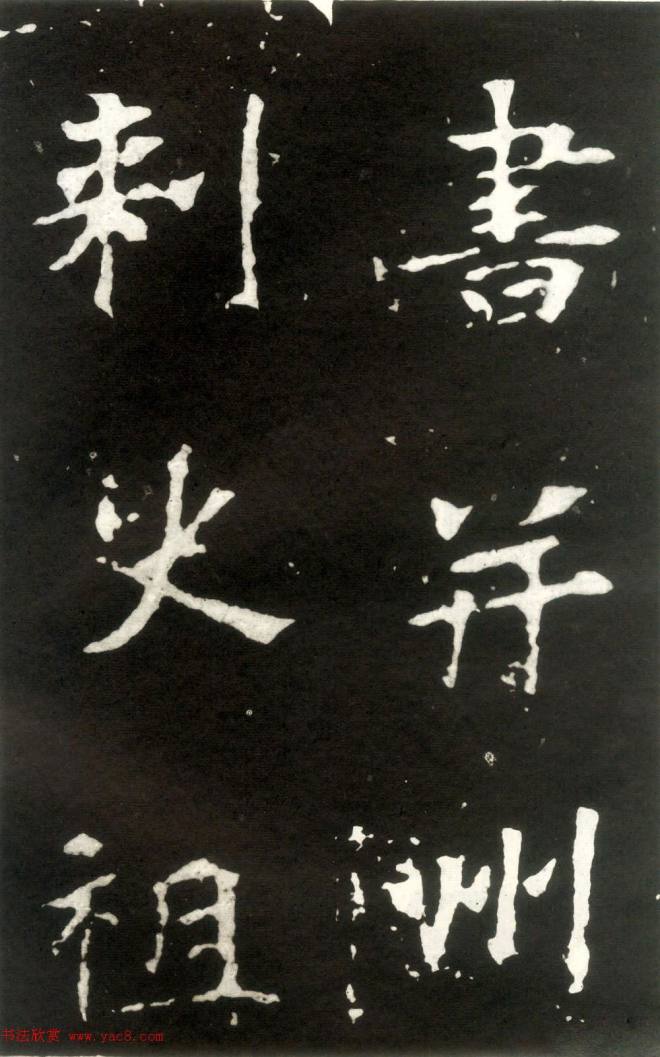 書并州
刺史祖
书法欣赏 www.yac8.com